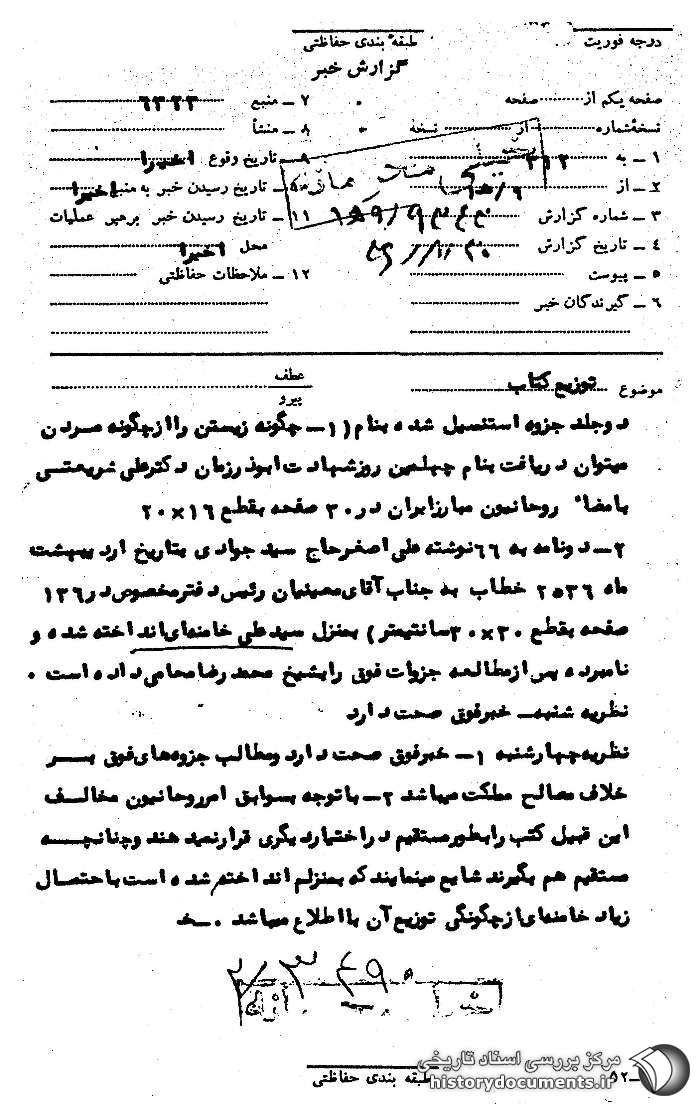 درجه فوریت
طبقهٔ بندی حفاظتی
گزارش خبر
صفحه یکم از صفحه
نسخهٔ شماره از نسخه
۱ ـ به ۳۱۲
۲ ـ از
۳ ـ شماره گزارش
۴ ـ تاریخ گزارش
۵ ـ پیوست
۶ ـ گیرندگان خبر
۷ ـ منبع ۶۳۲۳
۸ ـ منشأ
تاریخ وقوع اخیرا
تاریخ رسیدن خبر به منبع اخیرا
۱۱ ـ تاریخ رسیدن خبر برهبر عملیات
محل اخیرا
۱۲ ـ ملاحظات حفاظتی
موضوع توزیع کتاب
عطف
پیرو
دوجلد جزوه استنسیل شده بنام (۱ـ چگونه زیستن را ازچگونه مردن
میتوان دریافت بنام چهلمین روزشهادت ابوذرزمان دکترعلی شریعتی
بامضاء روحانیون مبارزایران در۳۰ صفحه بقطع ۱۶×۲۰
۲ـ دونامه به ۶۶نوشته علی اصغرحاج سید جوادی بتاریخ اردیبهشت
ماه ۲۵۳۶ خطاب به جناب آقای معینیان رئیس دفترمخصوص در۱۳۶
صفحه بقطع ۳۰×۳۰سانتیمتر) بمنزل سیدعلی خامنه‌ای انداخته شده و
نامبرده پس ازمطالعه جزوات فوق رابشیخ محمد رضامحامی داده است .
نظریه شنبه ـ خبرفوق صحت دارد
نظریه چهارشنبه ۱ـ خبرفوق صحت دارد ومطالب جزوه‌های فوق بر
خلاف مصالح مملکت میباشد ۲ـ باتوجه بسوابق امرروحانیون مخالف
این قبیل کتب رابطورمستقیم دراختیاردیگری قرارنمیدهند وچنانچه
مستقیم هم بگیرند شایع مینمایند که بمنزلم انداخته شده است باحتمال
زیاد خامنه‌ای ازچگونگی توزیع آن بااطلاع میباشد . ـخ
طبقه بندی حفاظتی
۵۲ـ
مرکز بررسی اسناد تاریخی
historydocuments.ir